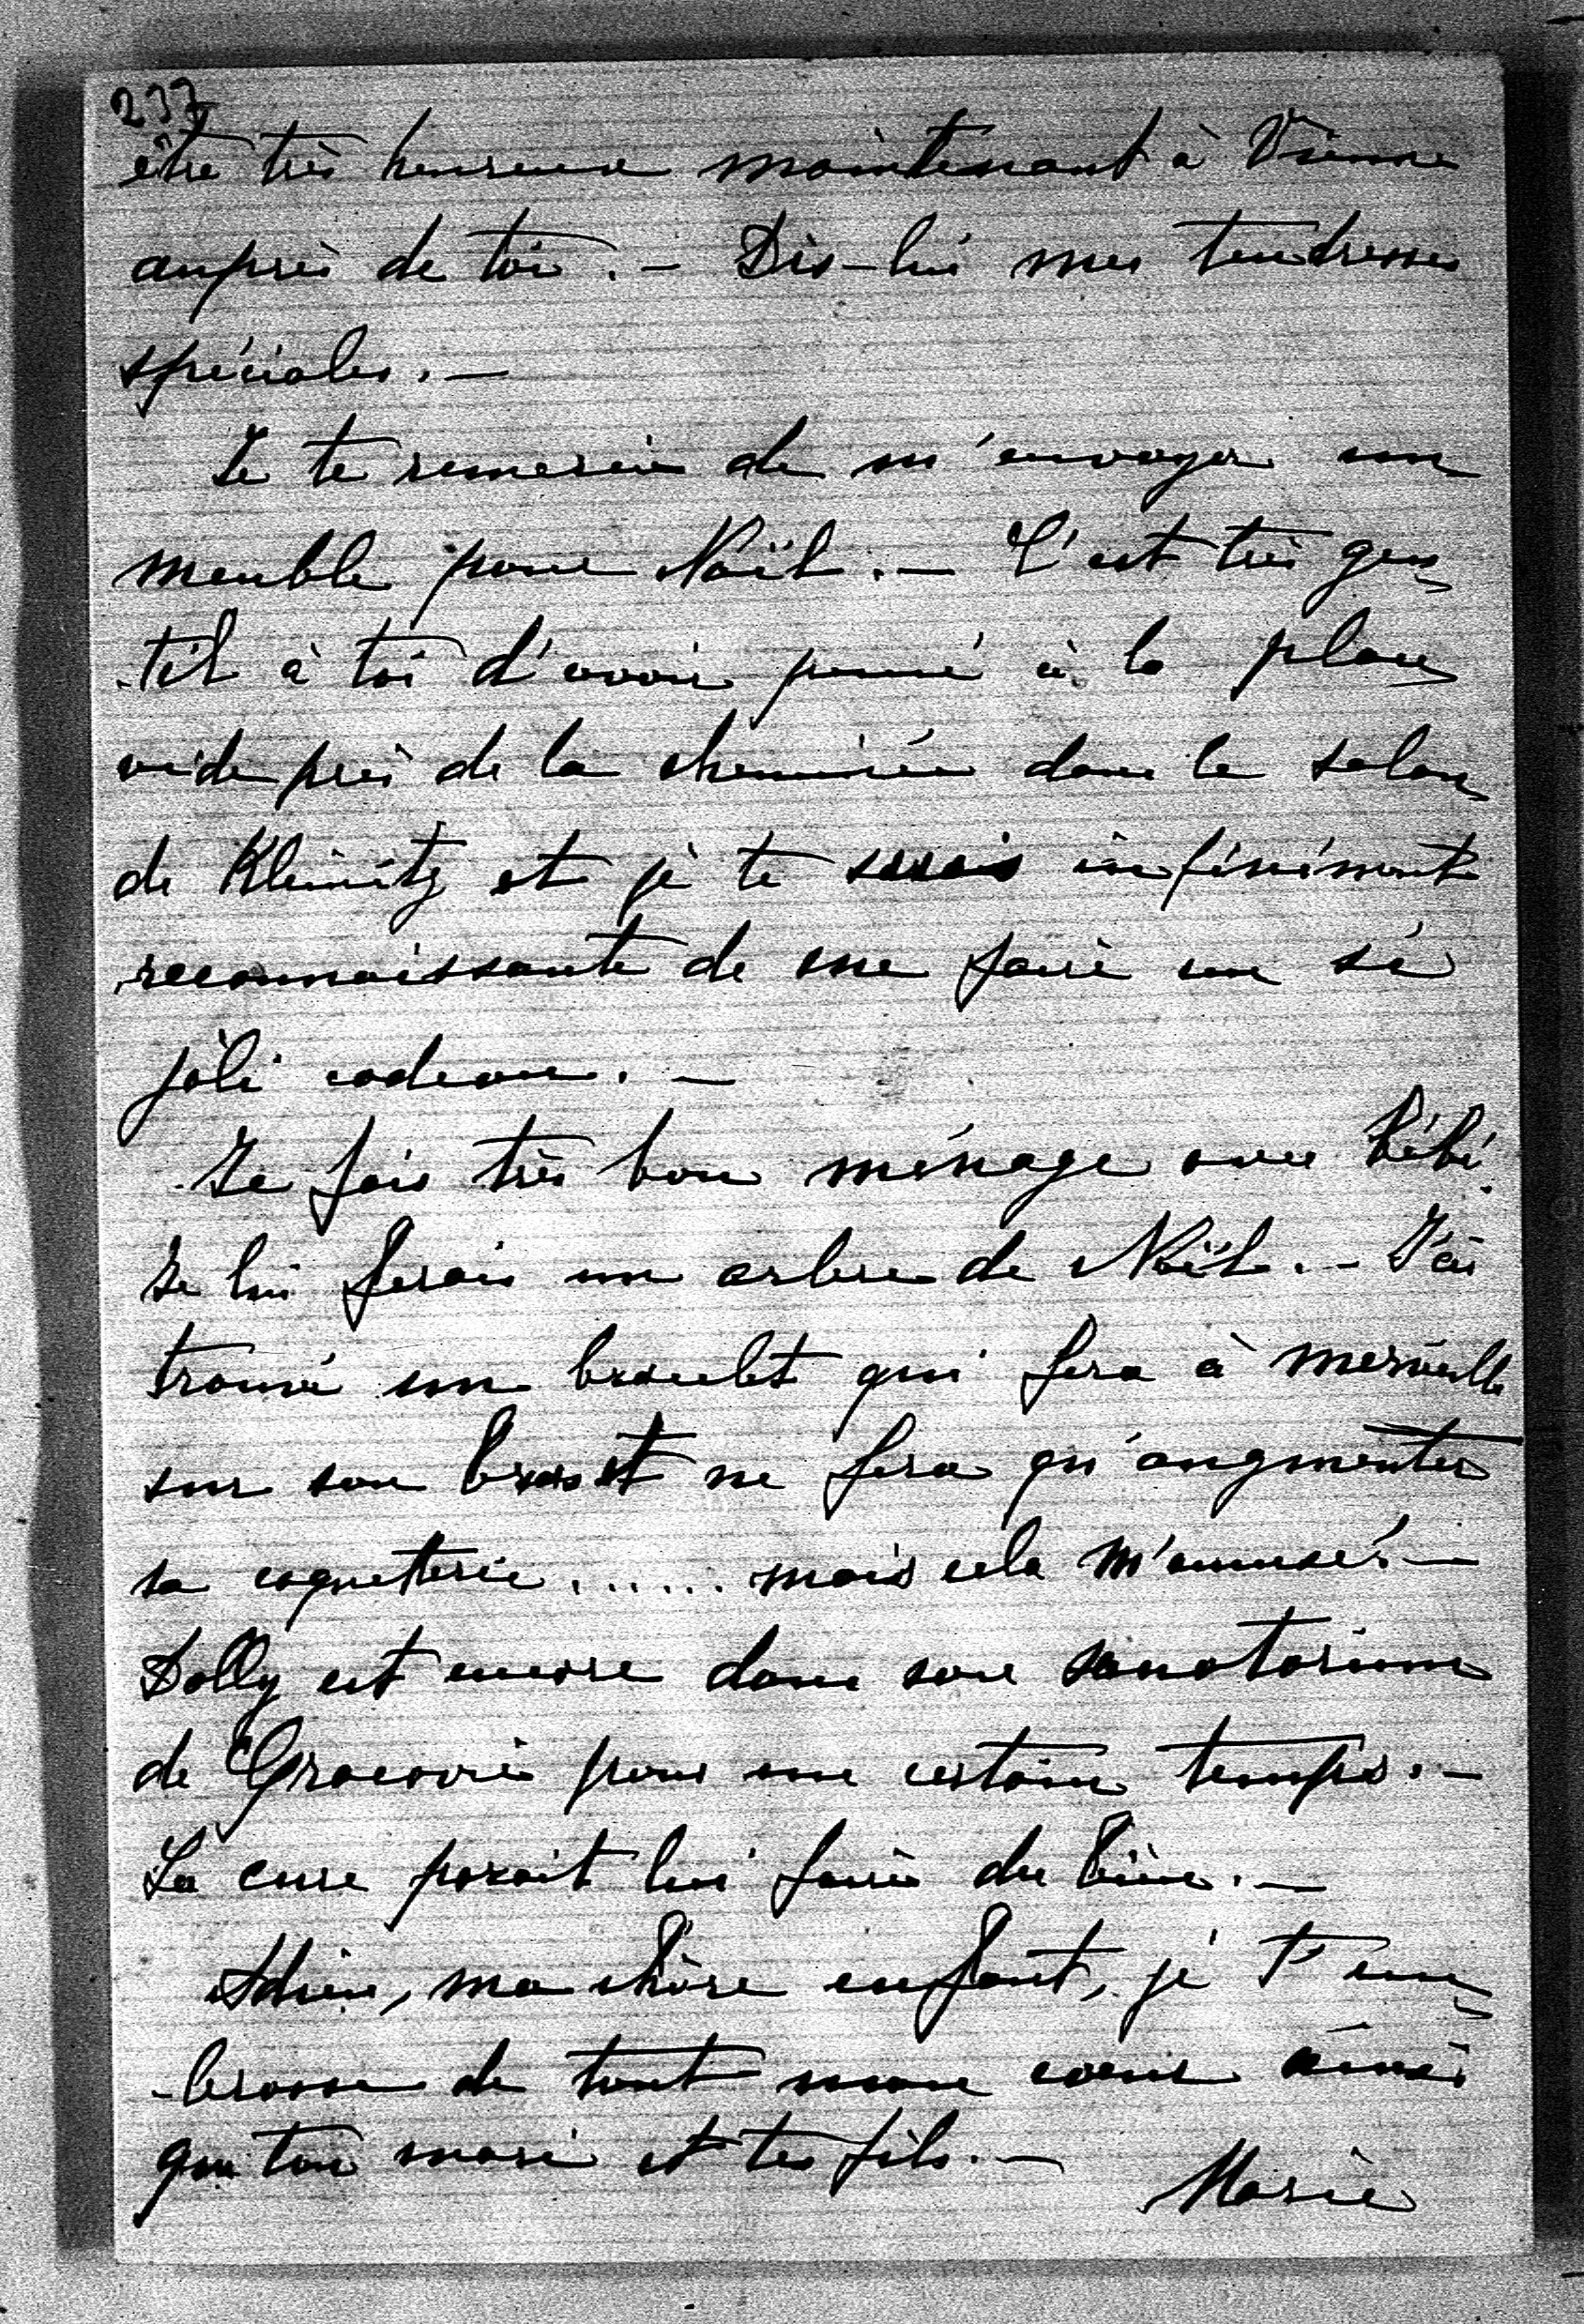 237
être très heureux maintenant à Vienne
auprès de toi. — Dis-lui mes tendresses
spéciales. —
Je te remercie de m'envoyer un
meuble pour Noël. — C'est très gen
til à toi d'avoir pensé à la place
vide près de la cheminée dans le salon
de Kleinitz et je te serais infiniment
reconnaissante de me faire un si
joli cadeau. —
Je fais très bon ménage avec Bébi.
Je lui ferais un arbre de Noël. — J'ai
trouvé un bracelet qui fera à merveille
sur son bras et ne fera qu'augmenter
sa coqueterie ...... mais cela m'amuse. —
Dolly est encore dans son sanatorium
de Cracovie pour un certain temps. —
La cure parait lui faire du bien. —
Adieu, ma chère enfant, je t'em
-brasse de tout mon cœur ainsi
que ton mari et tes fils. —
Marie